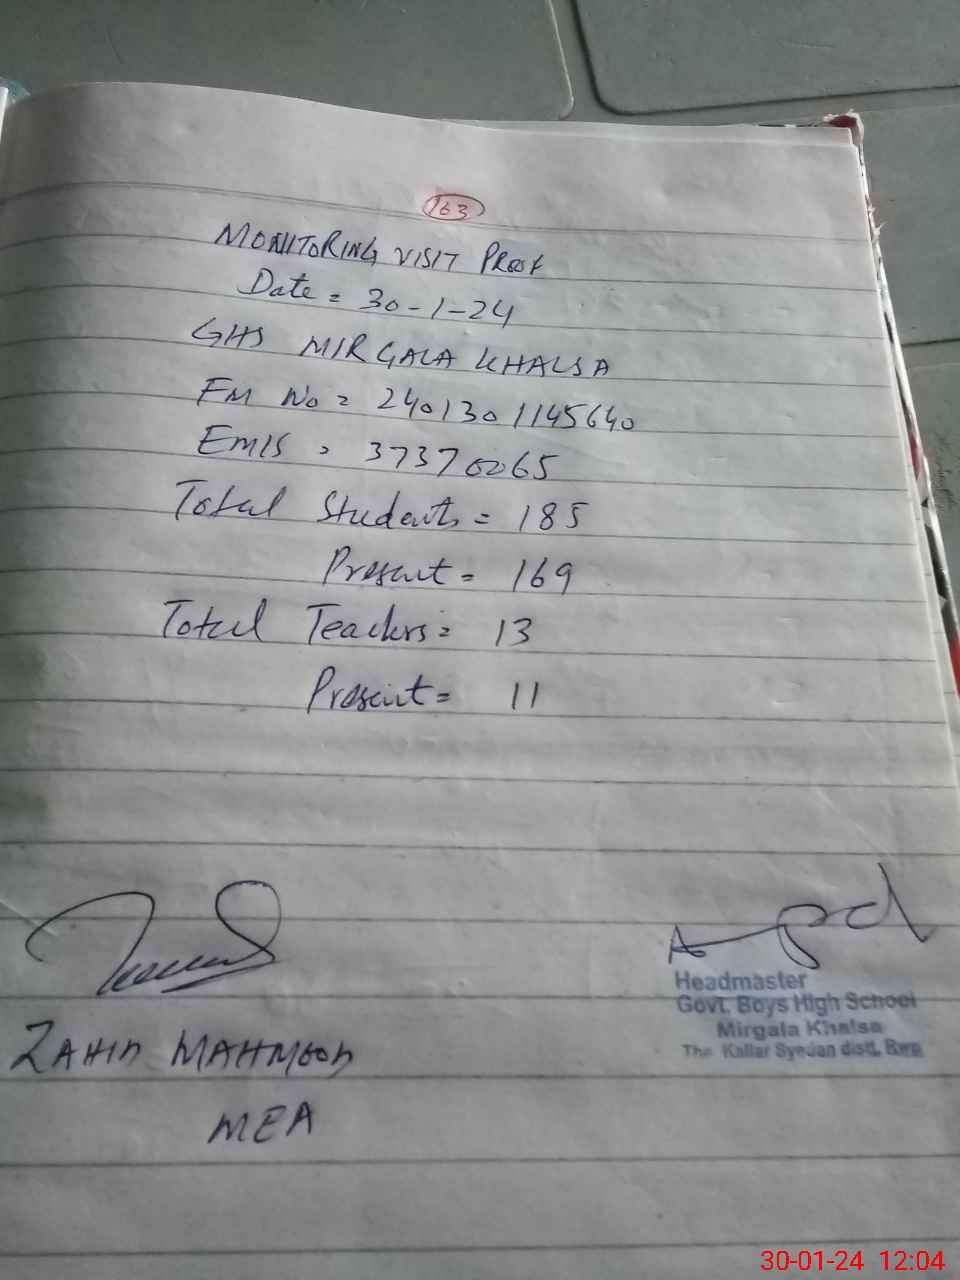 163
MONITORING VISIT PROOF
Date = 30-1-24
GHS MIRGALA KHALSA
FM No = 2401301145640
EMIS = 37370065
Total Students = 185
Present = 169
Total Teachers = 13
Present = 11
Headmaster
Govt. Boys High School
Mirgala Khalsa
The. Kallar Syedan distt. Rwp
ZAHID MAHMOOD
MEA
30-01-24 12:04